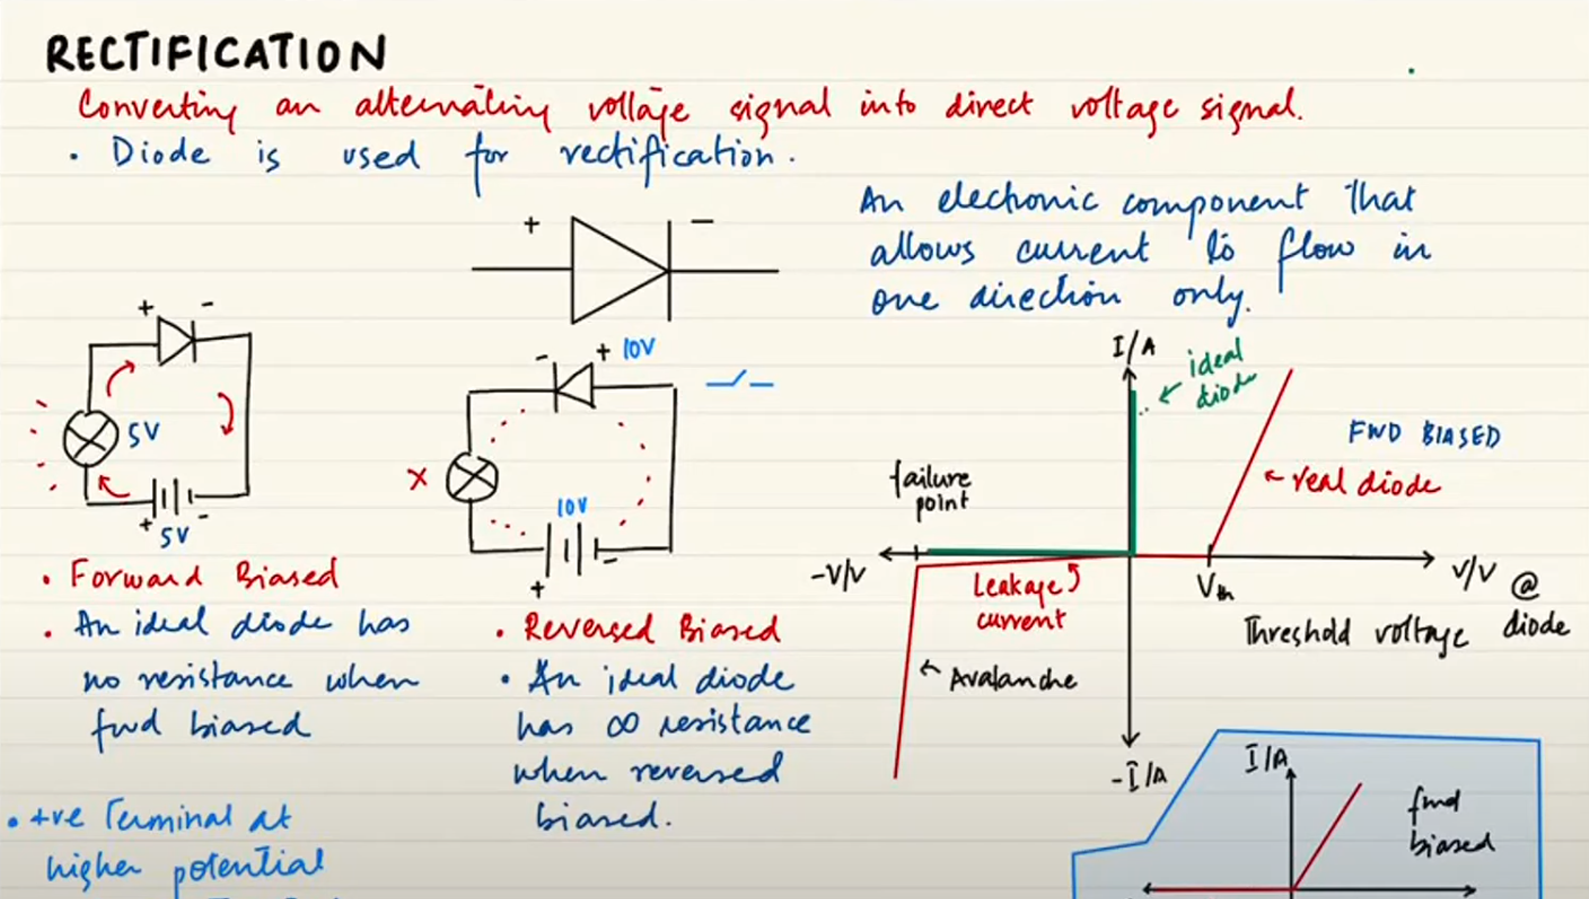 RECTIFICATION
Converting an alternating voltage signal into direct voltage signal.
• Diode is used for rectification.
An electronic component that
allows current to flow in
one direction only.
+ -
+ -
5V
+ -
5V
- + 10V
X
10V
+ -
• Forward Biased
• An ideal diode has
no resistance when
fwd biased
• +ve Terminal at
higher potential
• Reversed Biased
• An ideal diode
has ∞ resistance
when reversed
biased.
I/A
ideal
diode
FWD BIASED
real diode
failure
point
-V/V
Leakage
current
Vth
V/V @
diode
Threshold voltage
Avalanche
-I/A
I/A
fwd
biased